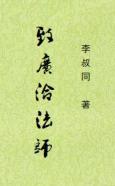 致廣洽法師
李叔同 著